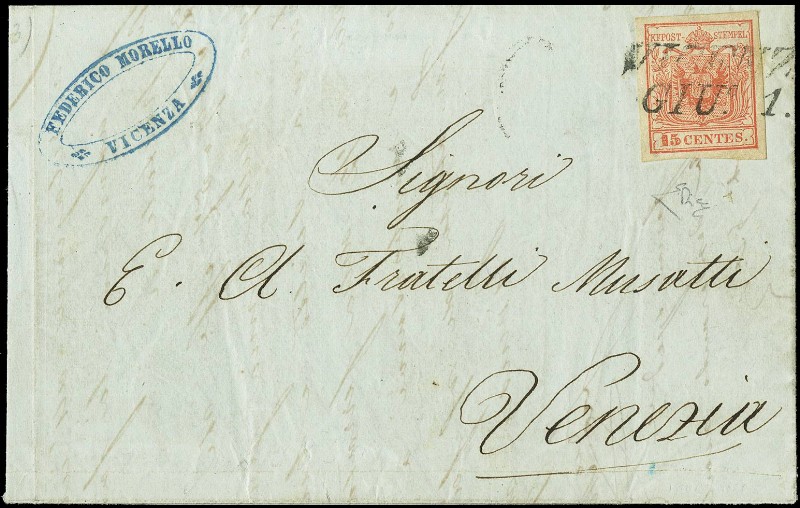 FEDERICO MORELLO
VICENZA
KKPOST-STEMPEL
15 CENTES.
VICENZA
GIU. 1.
Signori
E. A. Fratelli Musatti
Venezia